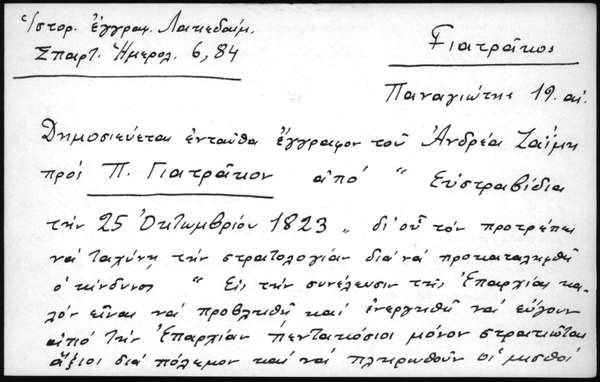 Ἱστορ. ἔγγραφ. Λακεδαίμ.
Σπαρτ. Ἡμερολ. 6, 84
Γιατρᾶκος
Παναγιώτης 19. αἰ.
Δημοσιεύεται ἐνταῦθα ἔγγραφον τοῦ Ἀνδρέα Ζαΐμη
πρός Π. Γιατρᾶκον ἀπό " Εὐστραβίδια
τήν 25 Ὀκτωμβρίου 1823 " δι' οὗ τόν προτρέπει
νά ταχύνη τήν στρατολογίαν διά νά προκαταληφθῆ
ὁ κίνδυνος " Εἰς τήν συνέλευσιν τῆς Ἐπαρχίας κα-
λόν εἶναι νά προβληθῆ καί ἐνεργηθῆ νά εὔγουν
ἀπό τήν Ἐπαρχίαν πεντακόσιοι μόνον στρατιῶται
ἄξιοι διά πόλεμον καί νά πληρωθοῦν οἱ μισθοί